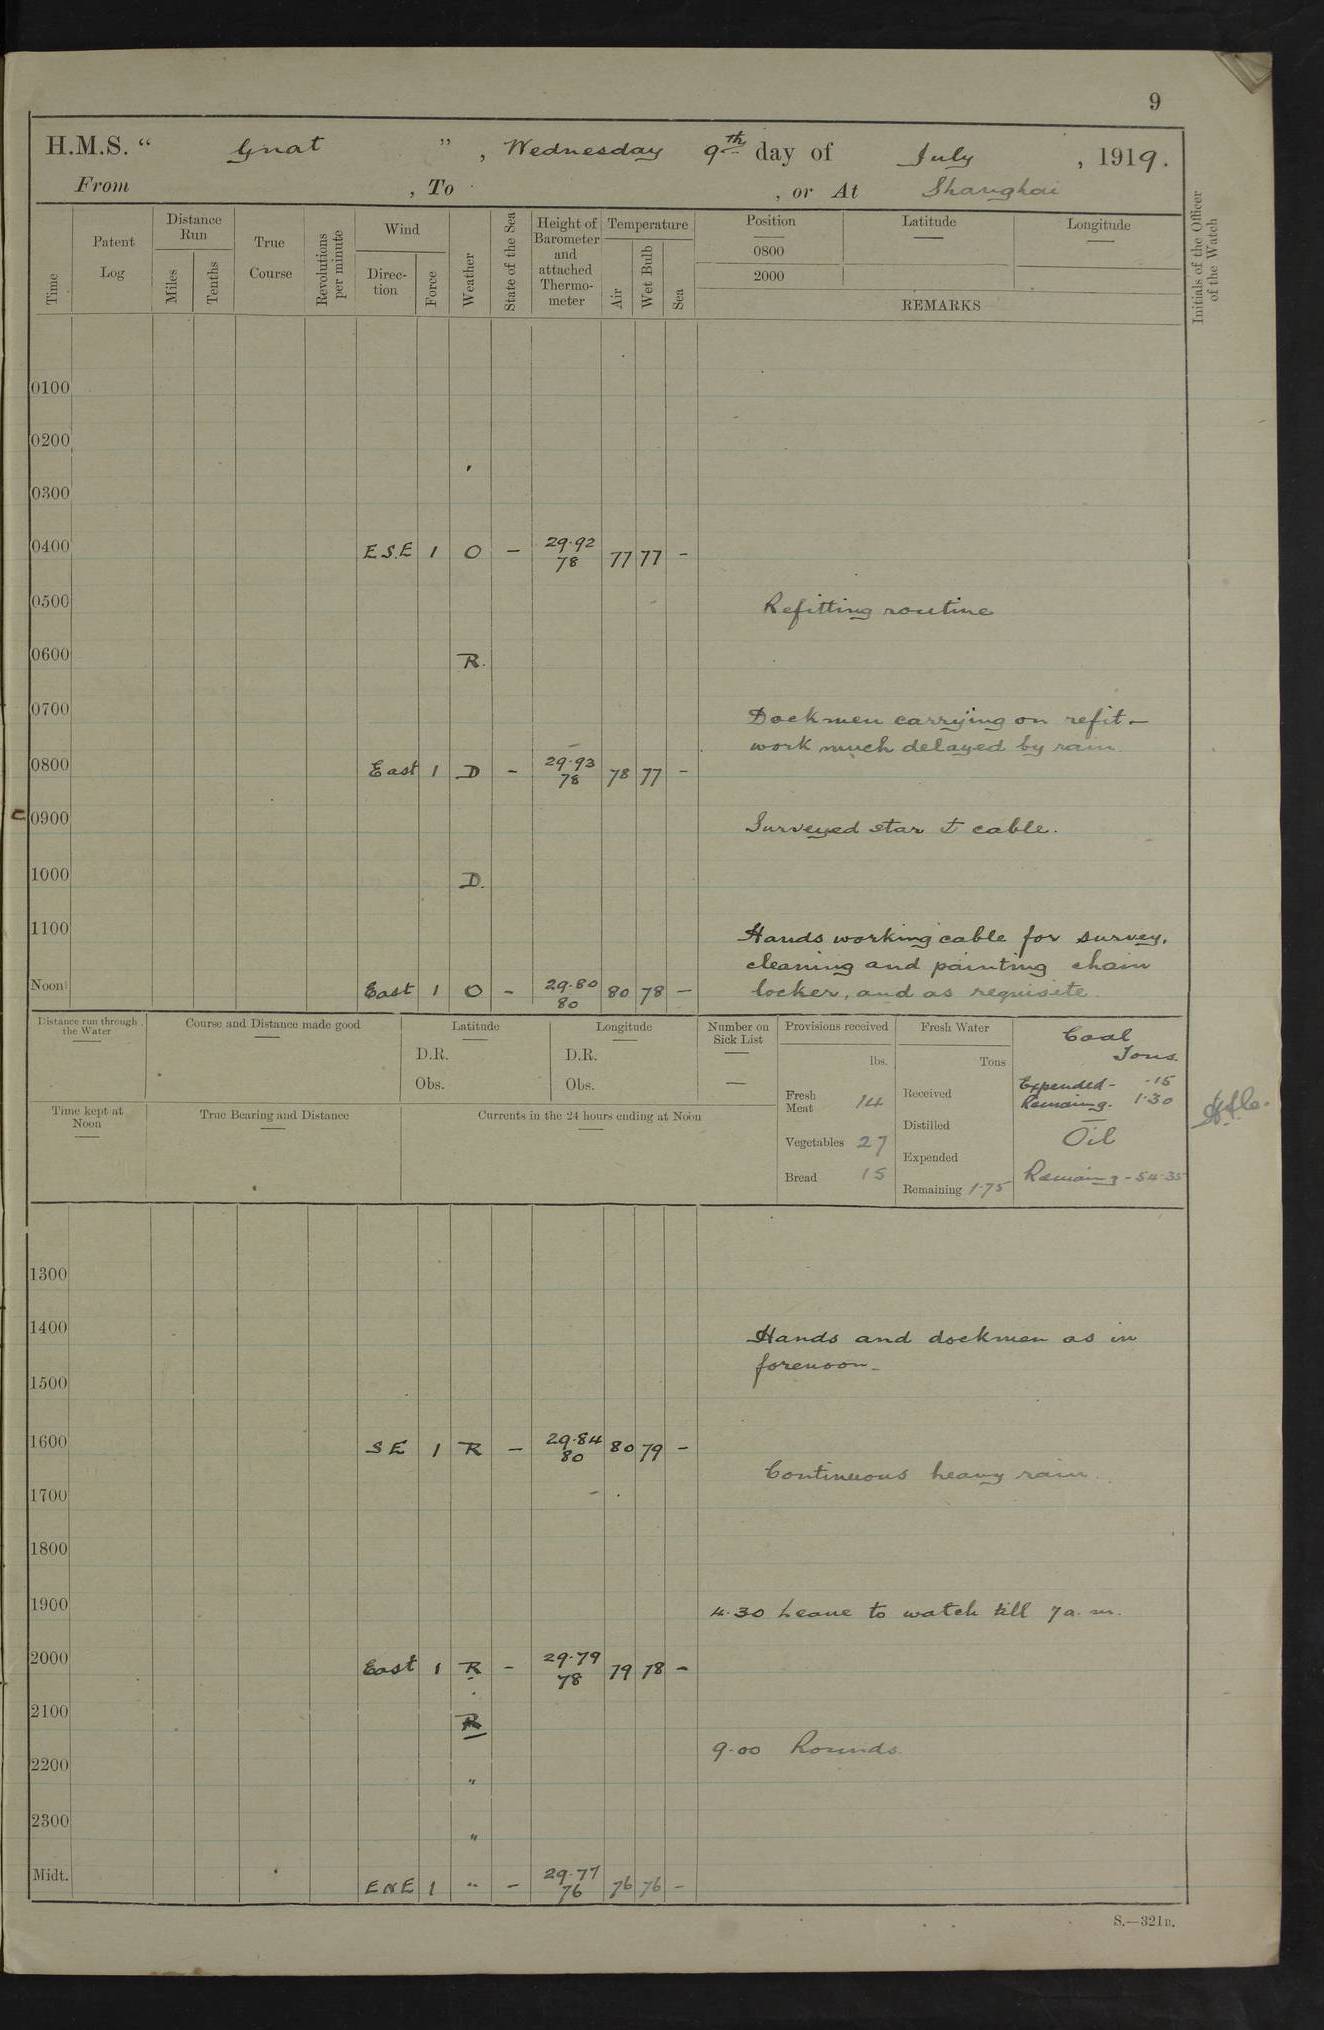 9
H.M.S. “ Gnat ” , Wednesday 9th day of July , 1919.
From , To , or At Shanghai
Time
Patent Log
Distance Run
Miles
Tenths
True Course
Revolutions per minute
Wind
Direc-tion
Force
Weather
State of the Sea
Height of Barometer and attached Thermo-meter
Temperature
Air
Wet Bulb
Sea
Position Latitude Longitude
0800
2000
REMARKS
Initials of the Officer of the Watch
0100
0200
0300
0400 E.S.E 1 O - 29.92 78 77 77 -
0500 Refitting routine
0600 R.
0700 Dockmen carrying on refit -
work much delayed by rain
0800 East 1 D - 29.93 78 78 77 -
0900 Surveyed star d cable.
1000 D.
1100 Hands working cable for survey,
cleaning and painting chain
Noon East 1 O - 29.80 80 80 78 - locker, and as requisite.
Distance run through the Water
Course and Distance made good
Latitude
D.R.
Obs.
Longitude
D.R.
Obs.
Number on Sick List
—
Provisions received
lbs.
Fresh Meat 14
Vegetables 27
Bread 15
Fresh Water
Tons
Received
Distilled
Expended
Remaining 1.75
Coal
Tons.
Expended - .15
Remaing. 1.30
Oil
Remaing - 54.35
Time kept at Noon
True Bearing and Distance
Currents in the 24 hours ending at Noon
1300
1400 Hands and dockmen as in
forenoon -
1500
1600 SE 1 R - 29.84 80 80 79 -
Continuous heavy rain.
1700
1800
1900 4.30 Leave to watch till 7 a.m.
2000 East 1 R - 29.79 78 79 78 -
2100 R
9.00 Rounds.
2200 "
2300 "
Midt. ENE 1 " - 29.77 76 76 76 -
S.—321B.